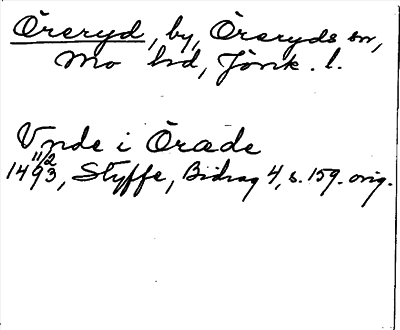 Öreryd, by, Öreryds sn,
Mo hd, Jönk. l.
Vnde i Öræde
1493 11/2, Styffe, Bidrag 4, s. 159. orig.